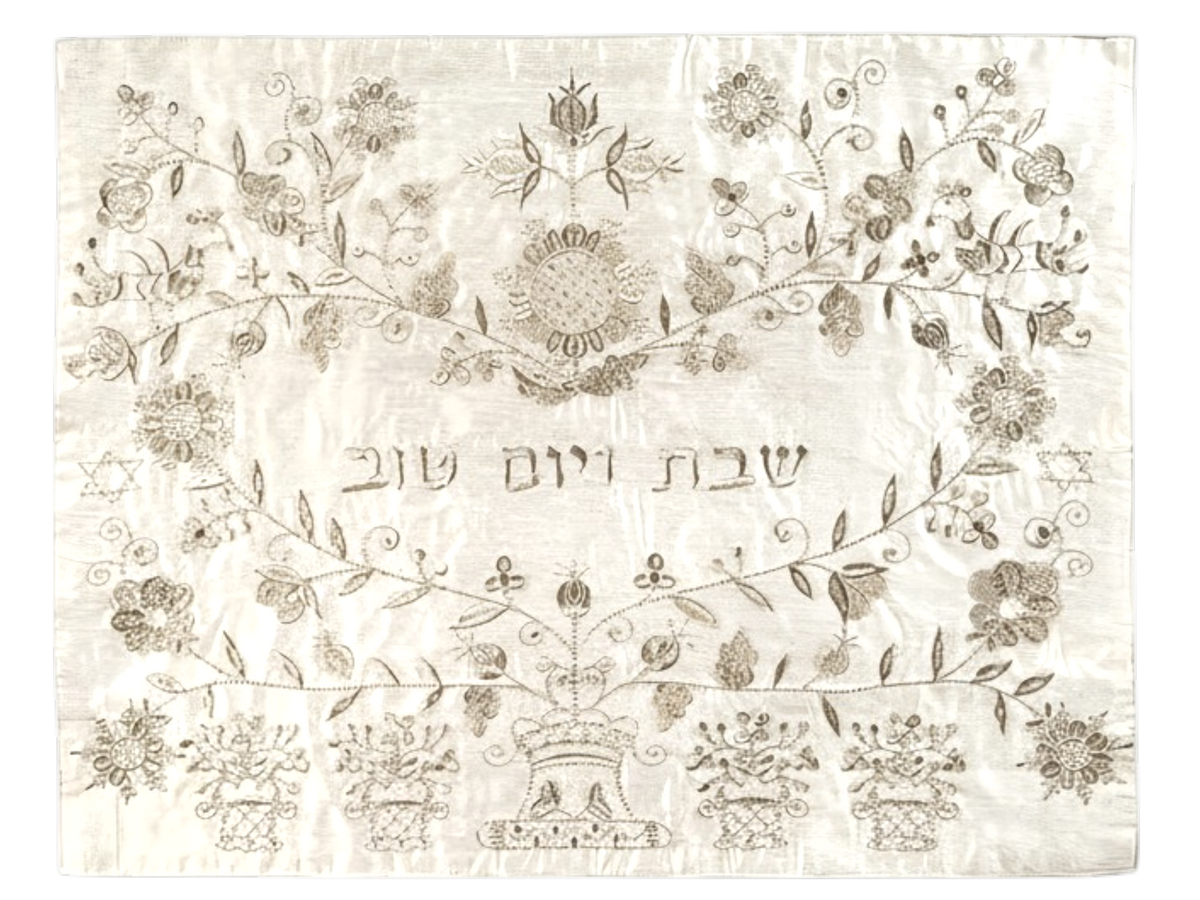 שבת ויום טוב